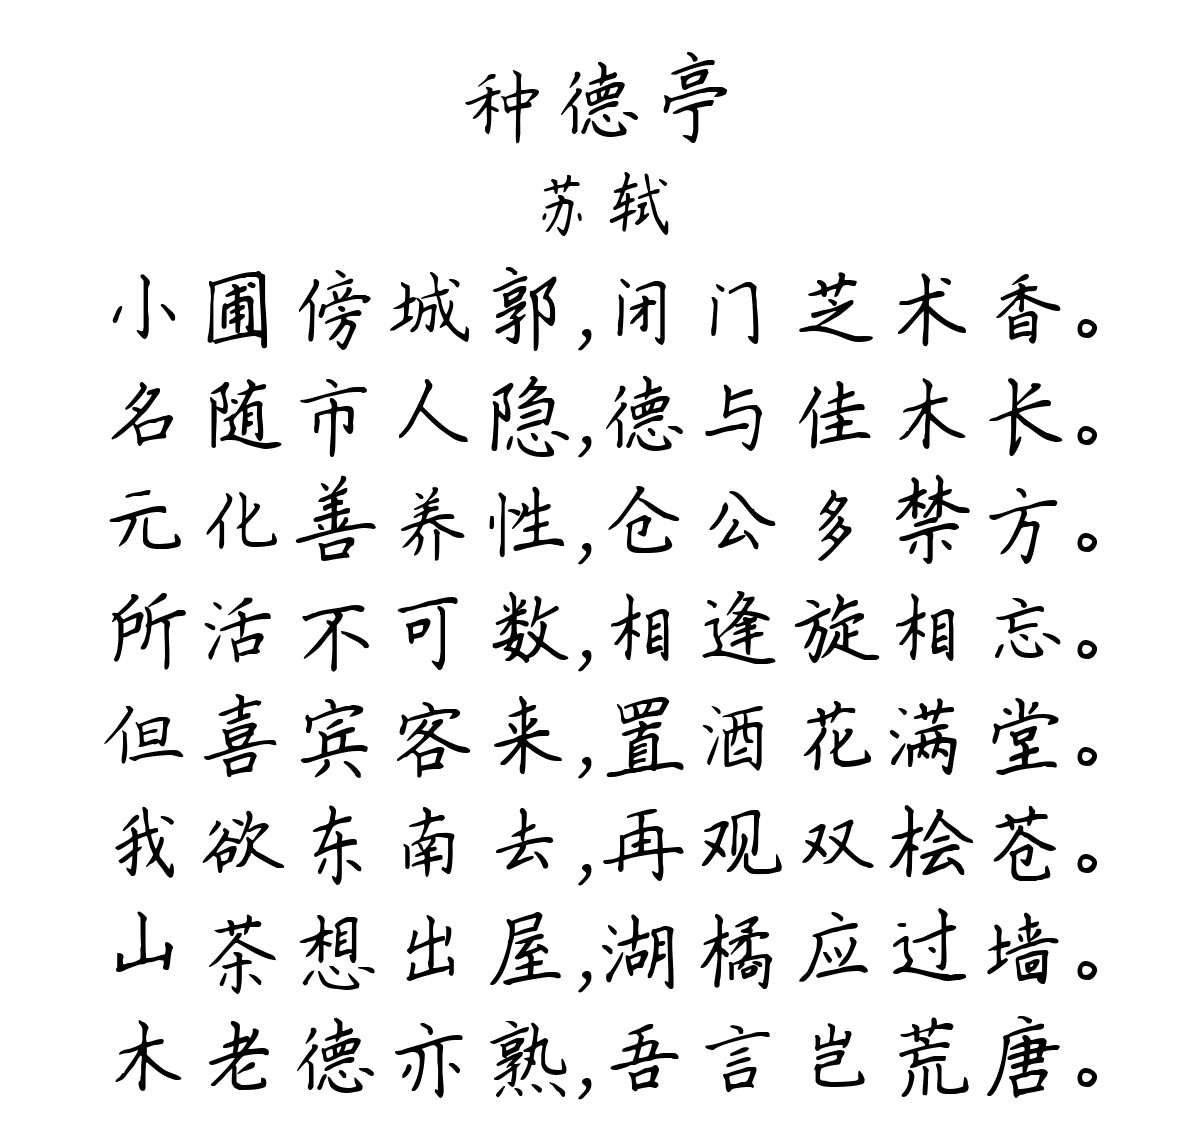 种德亭
苏轼
小圃傍城郭,闭门芝术香。
名随市人隐,德与佳木长。
元化善养性,仓公多禁方。
所活不可数,相逢旋相忘。
但喜宾客来,置酒花满堂。
我欲东南去,再观双桧苍。
山茶想出屋,湖橘应过墙。
木老德亦熟,吾言岂荒唐。